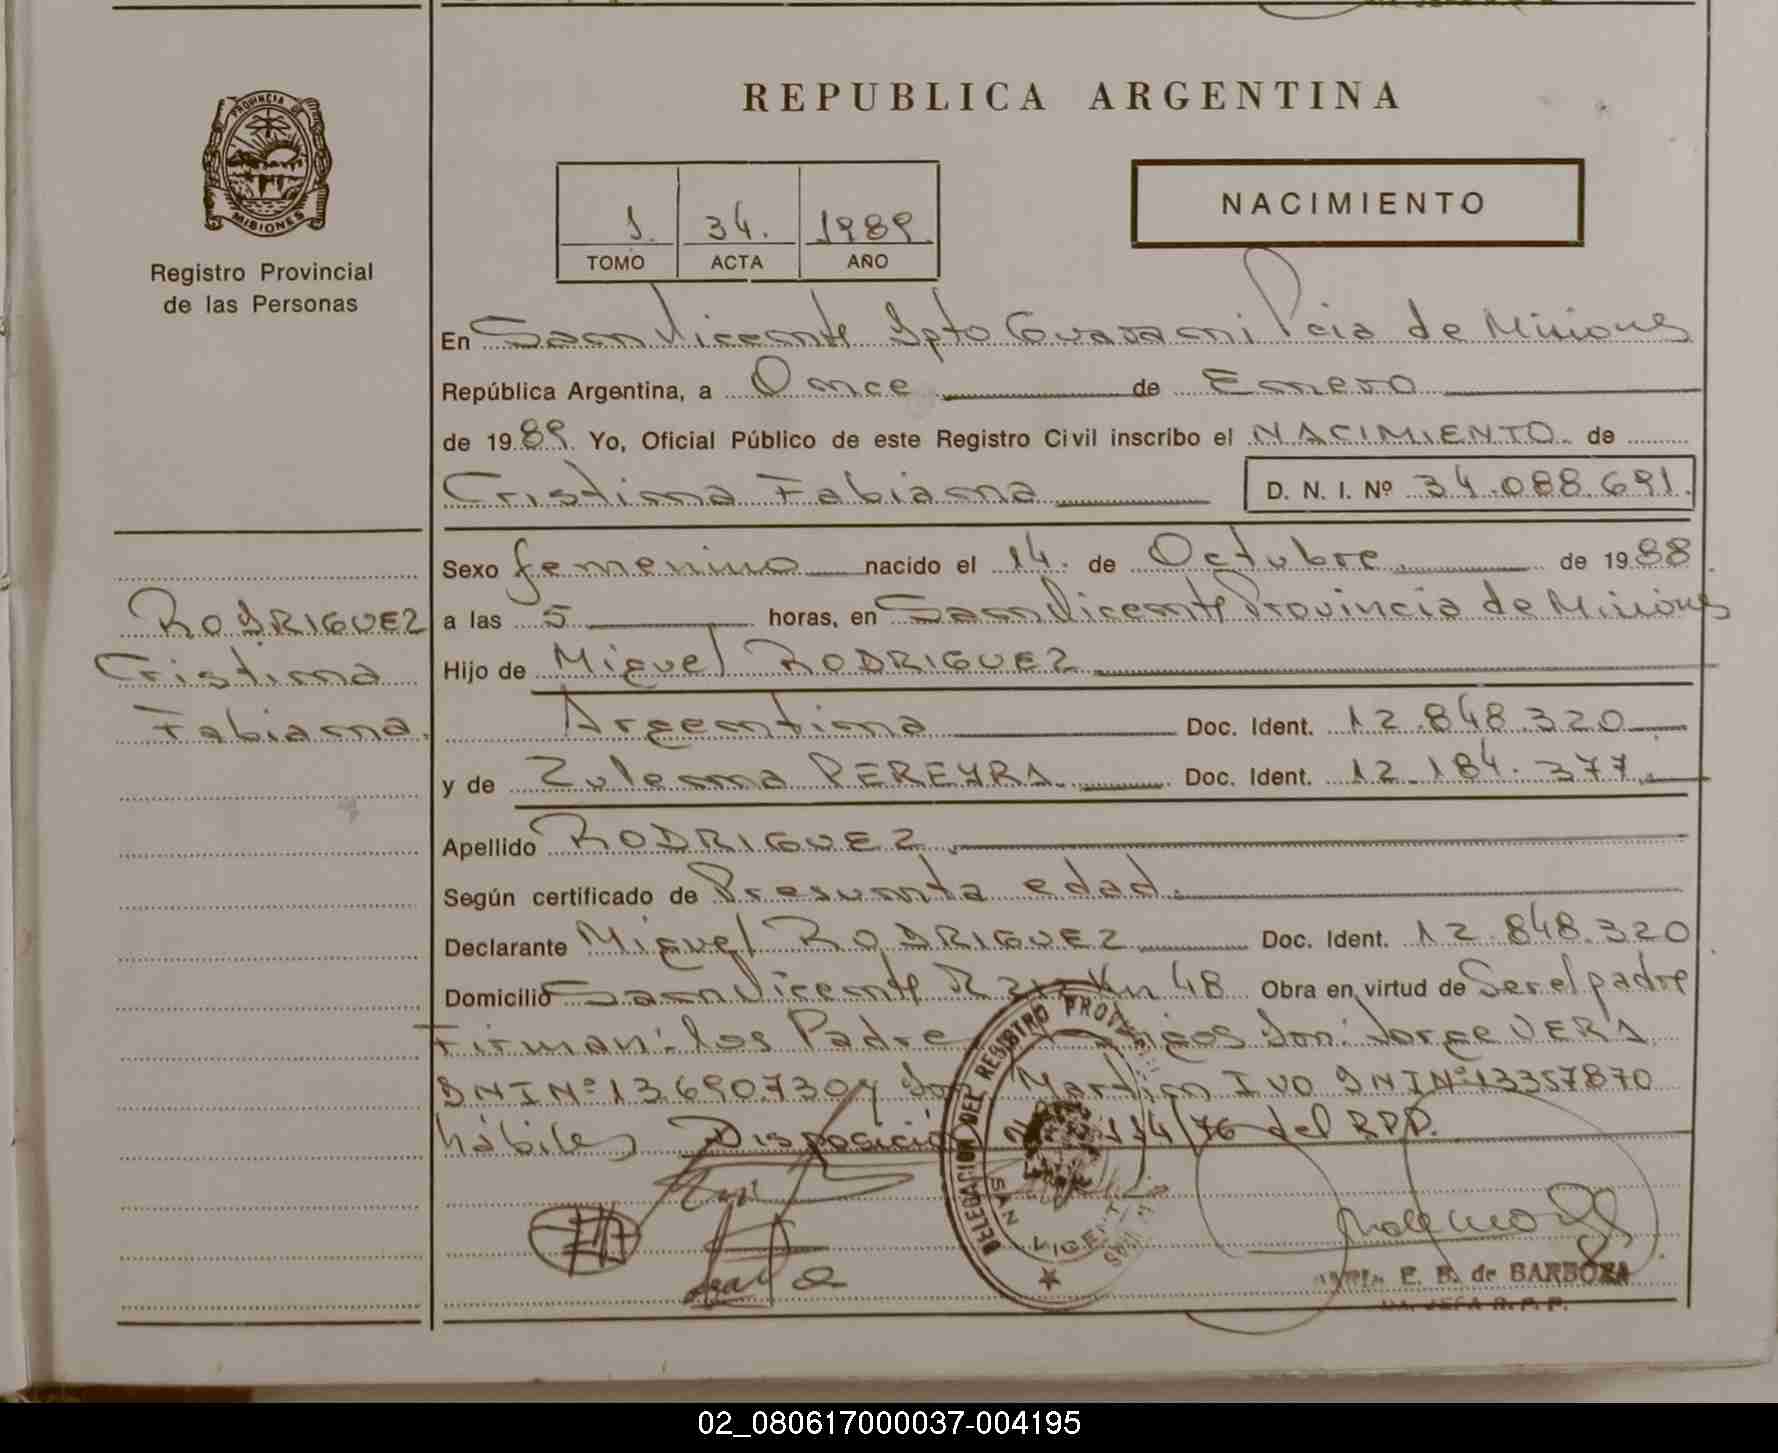 REPUBLICA ARGENTINA
PROVINCIA DE
MISIONES
Registro Provincial
de las Personas
1. 34. 1989.
TOMO ACTA AÑO
NACIMIENTO
En San Vicente Dpto Guarani Pcia de Misiones
República Argentina, a Once de Enero
de 1989. Yo, Oficial Público de este Registro Civil inscribo el NACIMIENTO de
Cristina Fabiana D. N. I. Nº 34.088.691.
RODRIGUEZ
Cristina
Fabiana.
Sexo femenino nacido el 14. de Octubre. de 1988.
a las 5 horas, en San Vicente Provincia de Misiones
Hijo de Miguel RODRIGUEZ
Argentina Doc. Ident. 12.848.320
y de Zulema PEREYRA. Doc. Ident. 12.184.377.
Apellido RODRIGUEZ.
Según certificado de Presunta edad.
Declarante Miguel RODRIGUEZ Doc. Ident. 12.848.320.
Domicilio San Vicente R Km 48 Obra en virtud de Ser el padre
Firman: los Padre Don: Jorge VERA
DNI Nº 13.690.730 y Don Martin IVO DNI Nº 13357870
hábiles Disposición 114/76 del RPP.
DELEGACION DEL REGISTRO
SAN VICENTE
E. B. de BARBOZA
JEFA R.P.P.
02_080617000037-004195